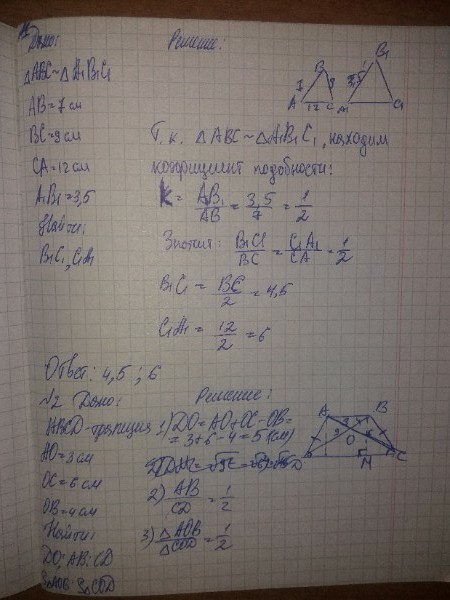 Дано:
Решение:
△ABC ~ △A₁B₁C₁
AB = 7 см
BC = 9 см
CA = 12 см
A₁B₁ = 3,5
Найти:
B₁C₁, C₁A₁
B
B₁
7
9
3,5
A 12 C
M
C₁
Т. к. △ABC ~ △A₁B₁C₁, находим
коэфициент подобности:
K = AB₁/AB = 3,5/7 = 1/2
Значит: B₁C₁/BC = C₁A₁/CA = 1/2
B₁C₁ = BC/2 = 4,5
C₁A₁ = 12/2 = 6
Ответ: 4,5 ; 6
№2 Дано:
Решение:
ABCD - трапеция
AO = 3 см
OC = 6 см
OB = 4 см
Найти:
DO; AB : CD
S△AOB : S△COD
1) DO = AO + OC - OB =
= 3 + 6 - 4 = 5 (см)
2) AB/CD = 1/2
3) △AOB/△COD = 1/2
A
B
3
4
O
D
M
C